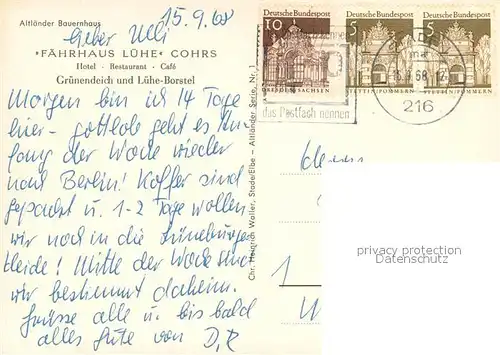 Altländer Bauernhaus
15.9.68
Lieber Ulli
"FÄHRHAUS LÜHE" COHRS
Hotel - Restaurant - Café
Grünendeich und Lühe-Borstel
Morgen bin ich 14 Tage
hier - gottlob geht es An-
fang der Woche wieder
nach Berlin! Koffer sind
gepackt u. 1-2 Tage wollen
wir noch in die Lüneburger
Heide! Mitte der Woche sind
wir bestimmt daheim.
Grüsse alle u. bis bald
alles Gute von D,R
Chr. Heinrich Weller, Stade/Elbe - Altländer Serie, Nr. 1
Deutsche Bundespost
10
DRESDEN/SACHSEN
Deutsche Bundespost
5
STETTIN/POMMERN
Deutsche Bundespost
5
STETTIN/POMMERN
das Postfach nennen
216
privacy protection
Datenschutz